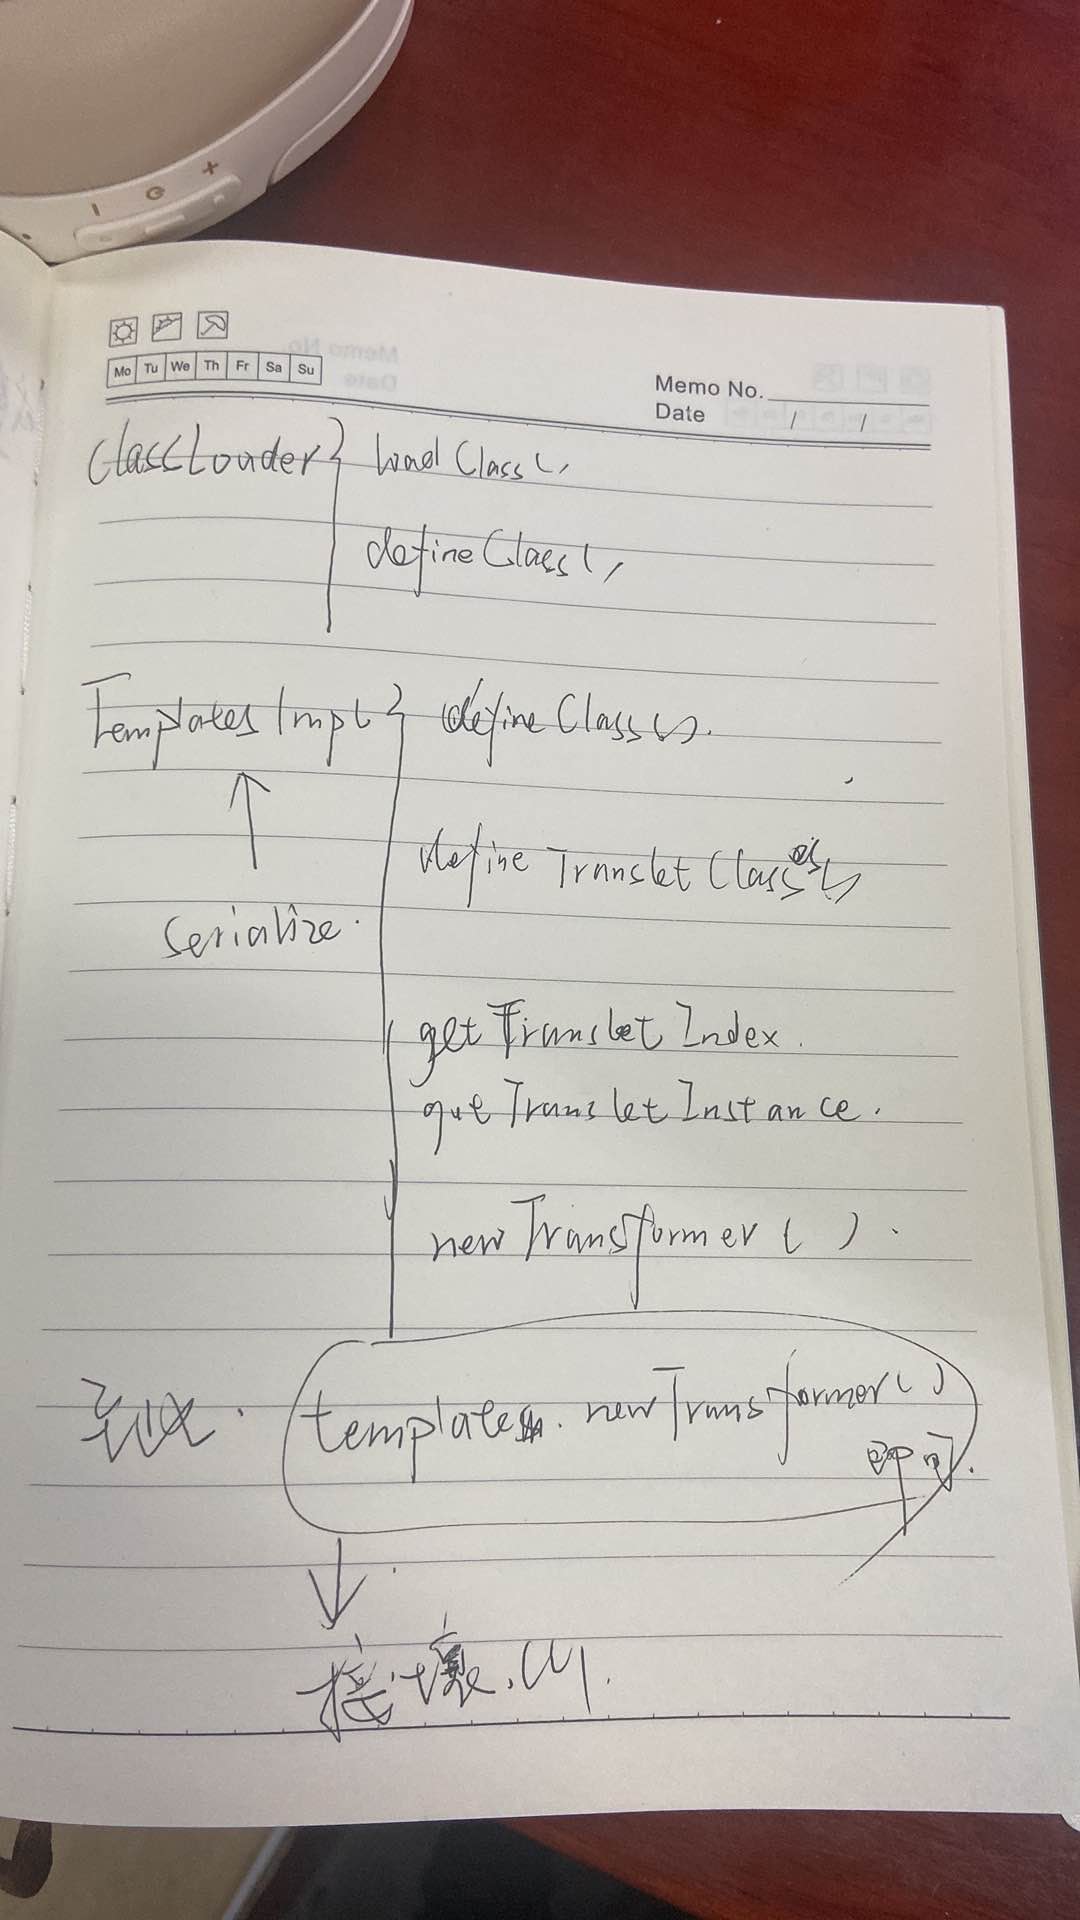 Mo Tu We Th Fr Sa Su
Memo No.
Date / /
ClassLoader } loadClass()
defineClass()
TemplatesImpl } defineClass().
defineTransletClasses()
serialize.
getTransletIndex.
getTransletInstance.
newTransformer().
templates.newTransformer()
即可.
接.壞.CC1.